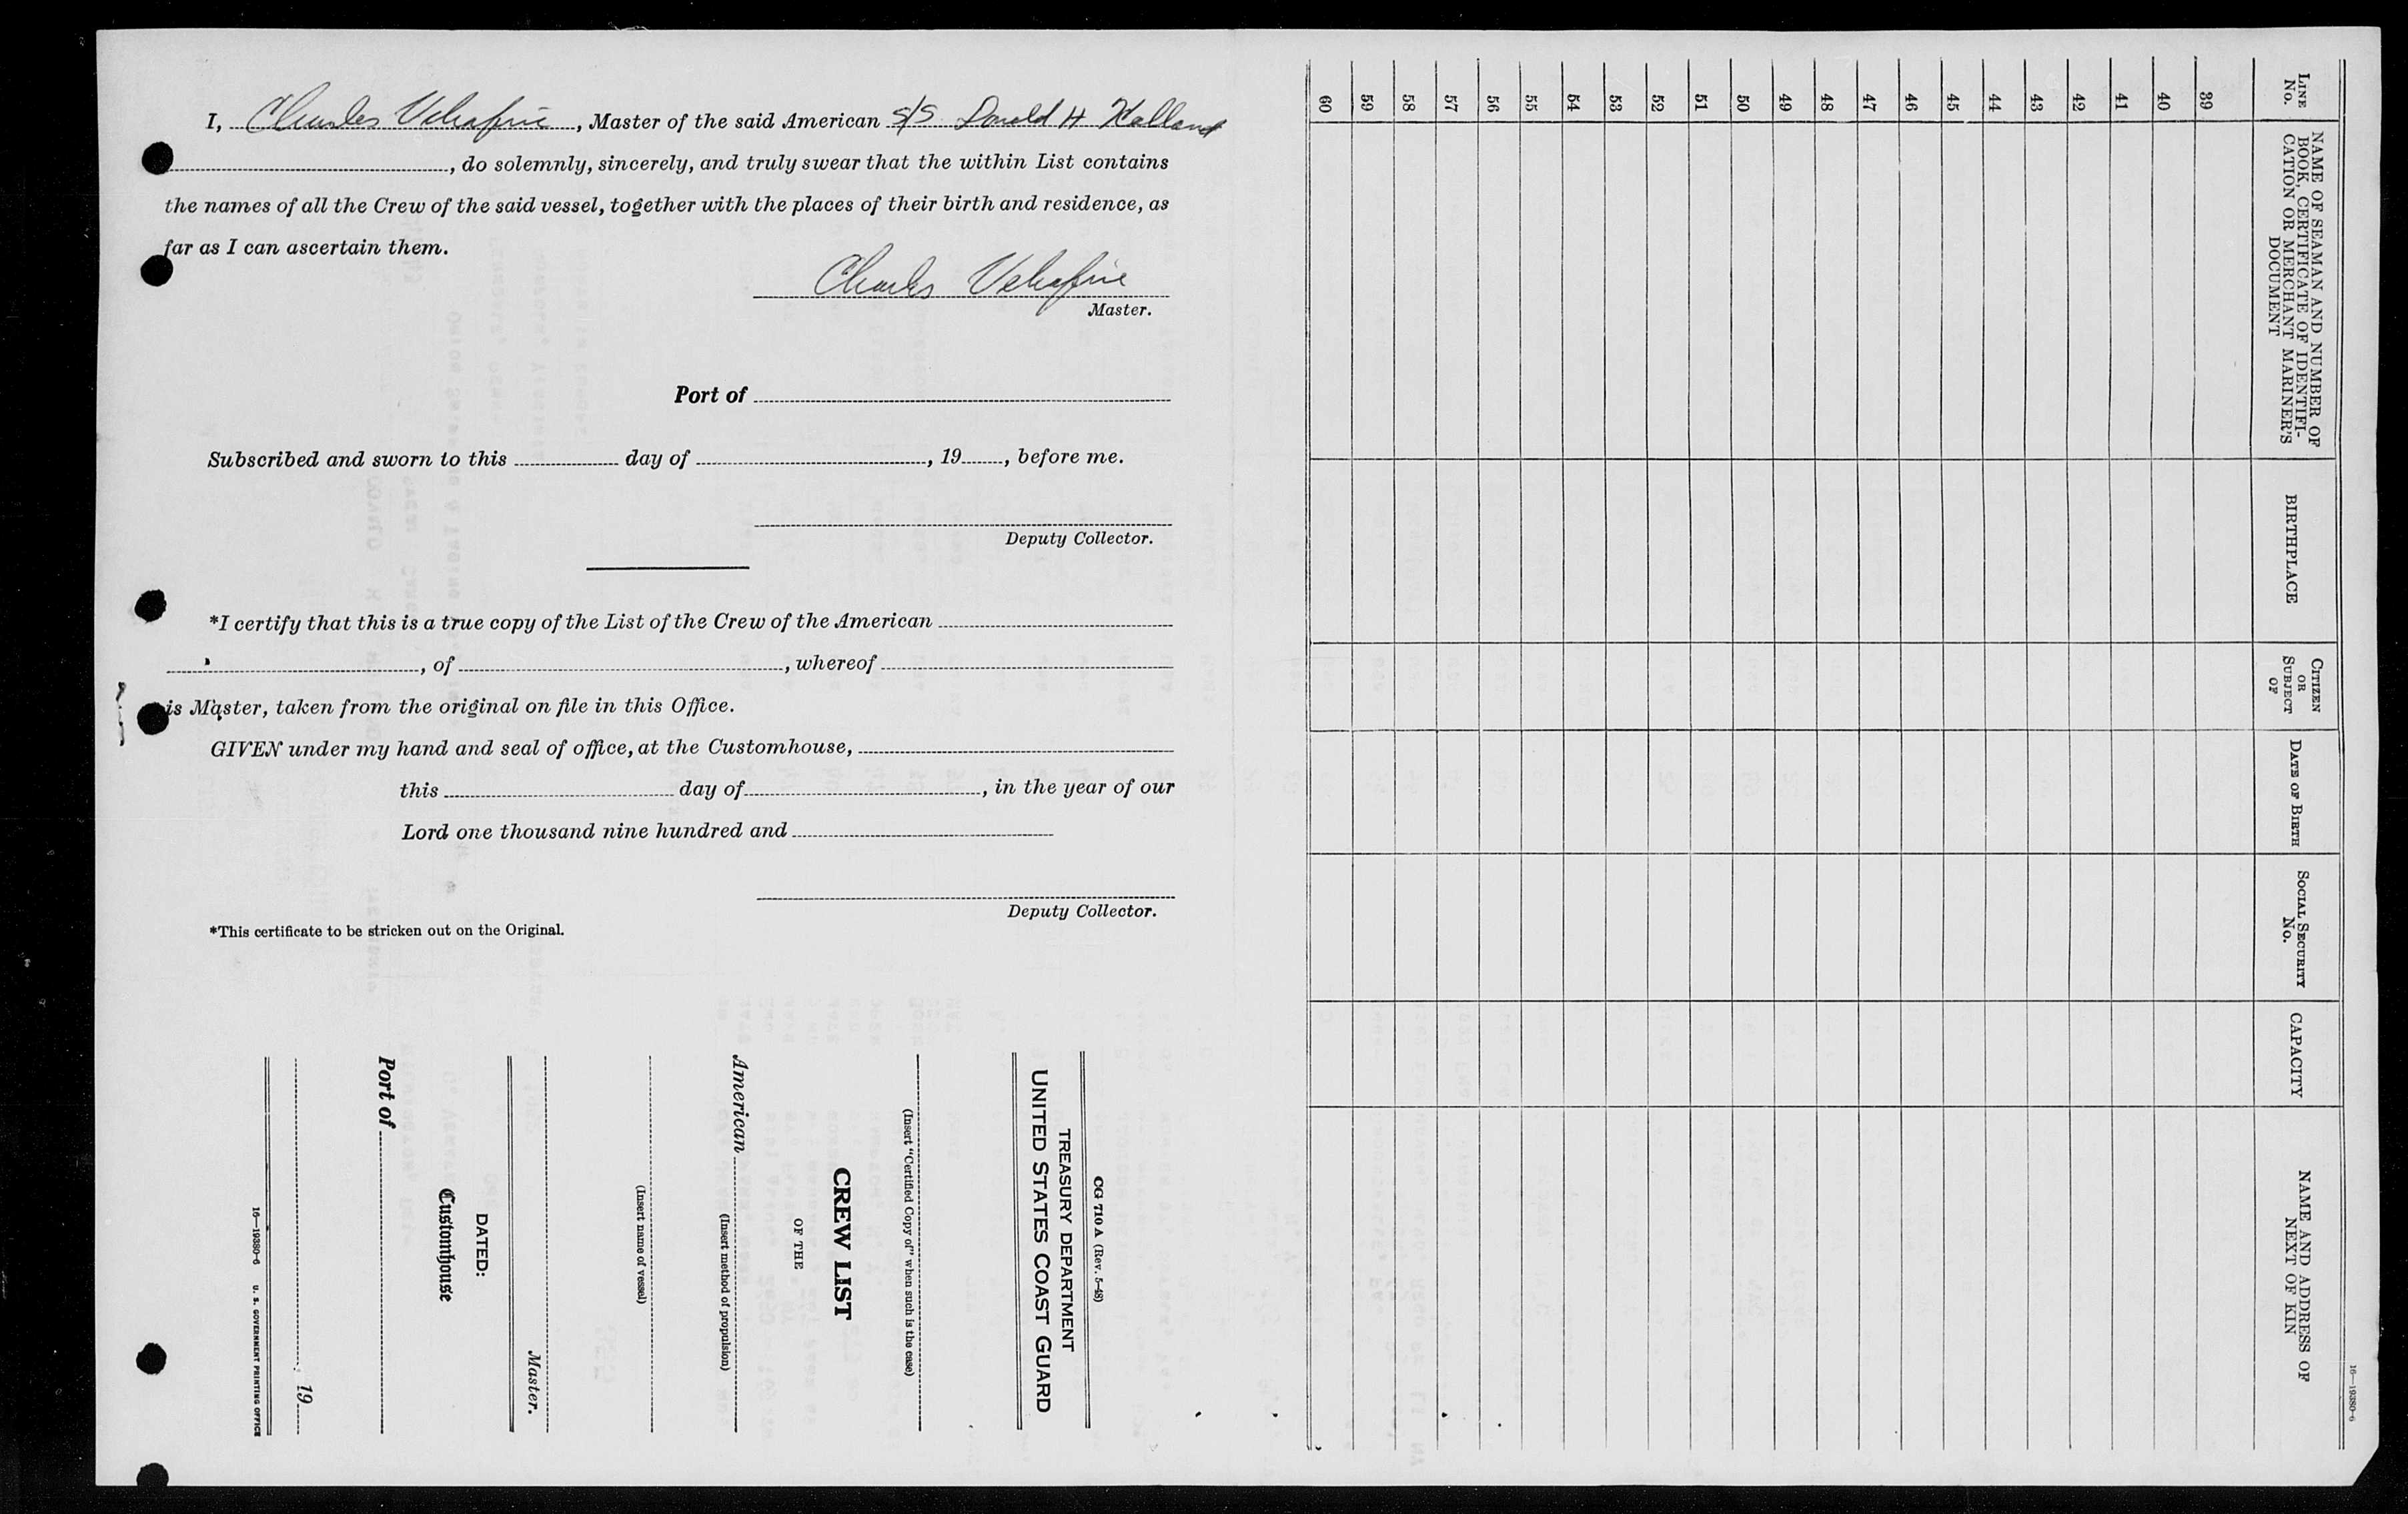 I, Charles , Master of the said American S/S Donald H Holland
, do solemnly, sincerely, and truly swear that the within List contains
the names of all the Crew of the said vessel, together with the places of their birth and residence, as
far as I can ascertain them.
Charles
Master.
Port of
Subscribed and sworn to this day of , 19 , before me.
Deputy Collector.
*I certify that this is a true copy of the List of the Crew of the American
, of , whereof
is Master, taken from the original on file in this Office.
GIVEN under my hand and seal of office, at the Customhouse,
this day of , in the year of our
Lord one thousand nine hundred and
Deputy Collector.
*This certificate to be stricken out on the Original.
CG 710 A (Rev. 5-48)
TREASURY DEPARTMENT
UNITED STATES COAST GUARD
(Insert "Certified Copy of" when such is the case)
CREW LIST
OF THE
American
(Insert method of propulsion)
(Insert name of vessel)
Master.
DATED:
Customhouse
Port of
, 19
16—19380-6 U. S. GOVERNMENT PRINTING OFFICE
16—19380-6
LINE No.
NAME OF SEAMAN AND NUMBER OF
BOOK, CERTIFICATE OF IDENTIFI-
CATION OR MERCHANT MARINER'S
DOCUMENT
BIRTHPLACE
CITIZEN
OR
SUBJECT
OF
DATE OF BIRTH
SOCIAL SECURITY
No.
CAPACITY
NAME AND ADDRESS OF
NEXT OF KIN
39
40
41
42
43
44
45
46
47
48
49
50
51
52
53
54
55
56
57
58
59
60